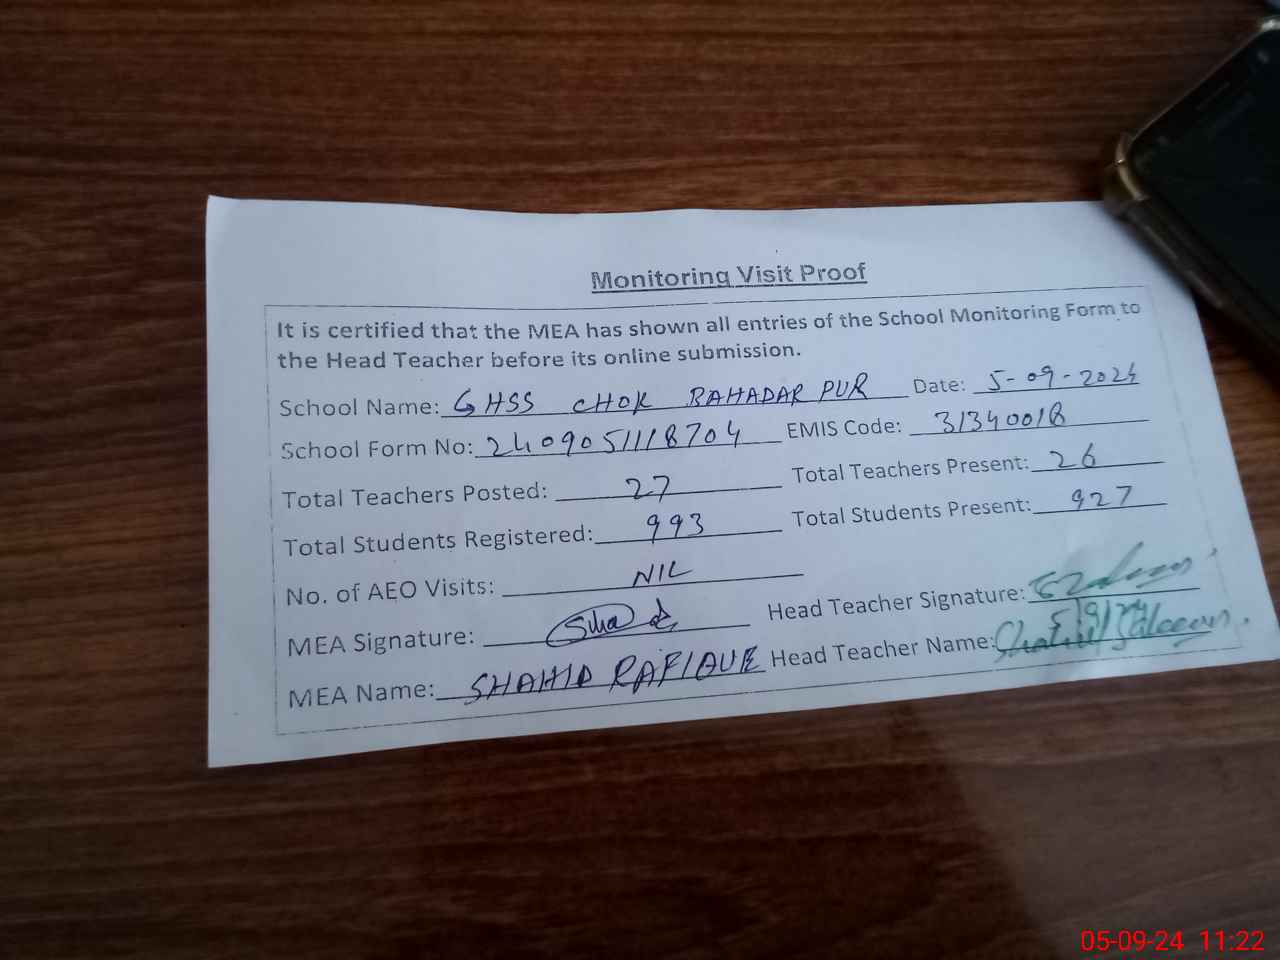 Monitoring Visit Proof
It is certified that the MEA has shown all entries of the School Monitoring Form to
the Head Teacher before its online submission.
School Name: GHSS CHOK BAHADAR PUR Date: 5-09-2024
School Form No: 2409051118704 EMIS Code: 31340018
Total Teachers Posted: 27 Total Teachers Present: 26
Total Students Registered: 993 Total Students Present: 927
No. of AEO Visits: NIL
MEA Signature: Head Teacher Signature:
MEA Name: SHAHID RAFIQUE Head Teacher Name:
05-09-24 11:22